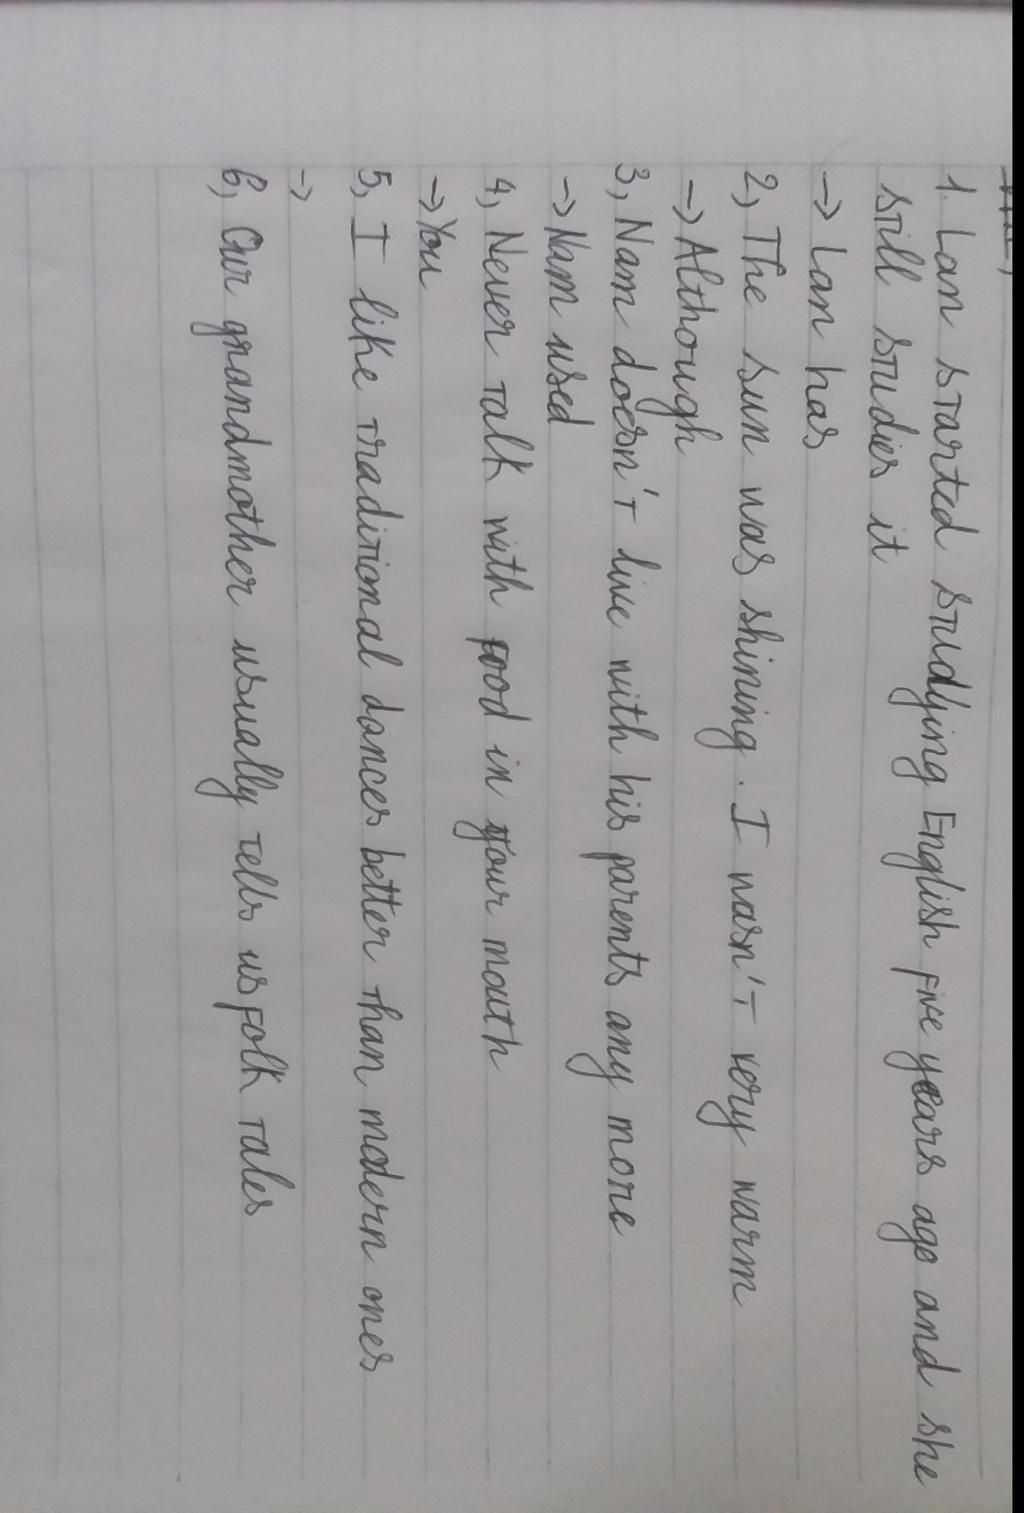 1. Lan started studying English five years ago and she
still studies it
→ Lan has
2, The sun was shining. I wasn't very warm
→ Although
3, Nam doesn't live with his parents any more
→ Nam used
4, Never talk with food in your mouth
→ You
5, I like traditional dances better than modern ones
→
6, Our grandmother usually tells us folk tales